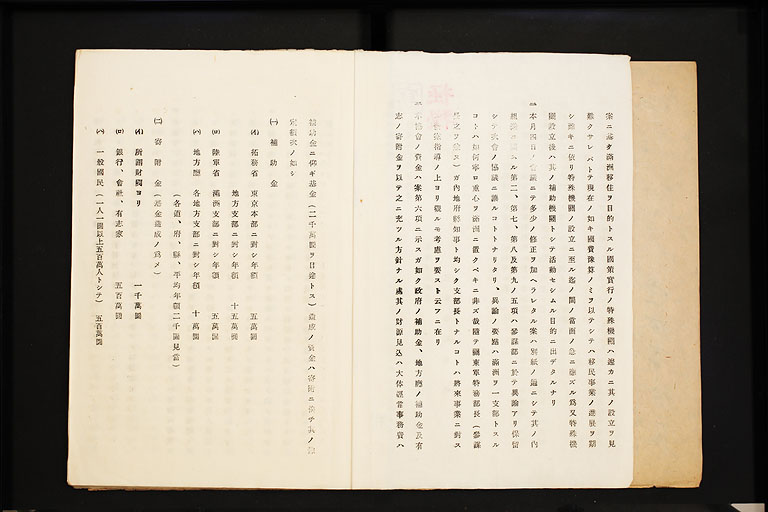 案ニ基ク滿洲移住ヲ目的トスル國策實行ノ特殊機關ハ速カニ其ノ設立ヲ見
難クサレバトテ現在ノ如キ國費豫算ノミヲ以テシテハ移民事業ノ進展ヲ期
シ難キニ依リ特殊機關ノ設立ニ至ル迄ノ間ノ當面ノ急ニ應ズル爲又特殊機
關設立後ハ其ノ補助機關トシテ活動セシムル目的ニ出デタルナリ
本月四日ノ會議ニテ多少ノ修正ヲ加ヘラレタル案ハ別紙ノ通ニシテ其ノ內
第二、第七、第八及第九ノ五項ハ參謀部ニ於テ異論アリ保留
シテ次會ノ協議ニ讓ルコトトナリタリ、異論ノ要點ハ滿洲ヲ一支部トスル
コトハ如何寧ロ重心ヲ滿洲ニ置クベキニ非ズ哉隨テ關東軍特務部長(參謀
長ヲ)ガ內地府縣知事ト均シク支部長トナルコトハ將來事業ニ對ス
指導ノ上ヨリ觀ルモ考慮ヲ要スト云フニ在リ
本協會ノ資金ハ案第六項ニ示スガ如ク政府ノ補助金、地方廳ノ補助金及有
志ノ寄附金ヲ以テ之ニ充ツル方針ナル處其ノ財源見込ハ大体經常事務費ハ
補助金ニ仰ギ基金(二千萬圓ヲ目途トス)造成ノ資金ハ寄附ニ依テ其ノ
定額次ノ如シ
(一) 補助金
(イ) 拓務省 東京本部ニ對シ年額 五萬圓
地方支部ニ對シ年額 十五萬圓
(ロ) 陸軍省 滿洲支部ニ對シ年額 五萬圓
(ハ) 地方廳 各地方支部ニ對シ年額 十萬圓
(各道、府、縣、平均年額二千圓見當)
(二) 寄附金(基金造成ノ爲メ)
(イ) 所謂財閥ヨリ 一千萬圓
(ロ) 銀行、會社、有志家 五百萬圓
(ハ) 一般國民(一人一圓以上五百萬人トシテ) 五百萬圓